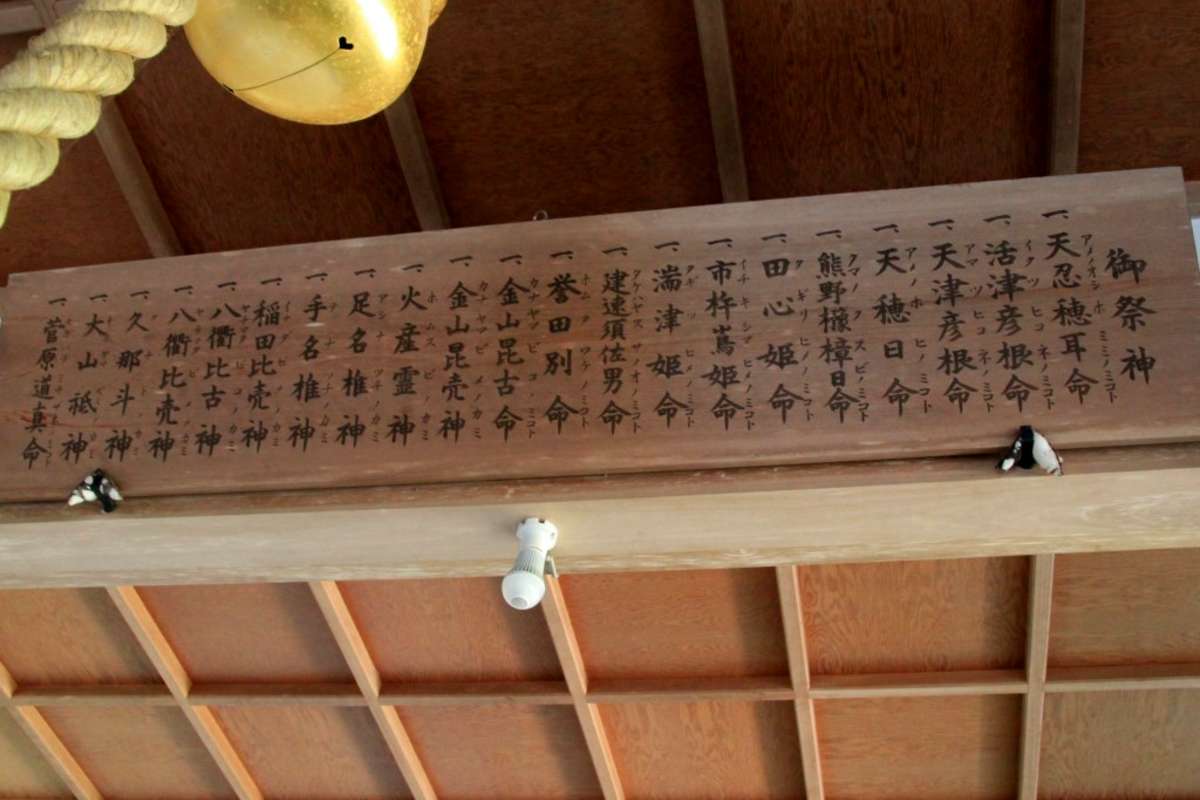 御祭神
一、天忍穂耳命
一、活津彦根命
一、天津彦根命
一、天穂日命
一、熊野櫲樟日命
一、田心姫命
一、市杵嶌姫命
一、湍津姫命
一、建速須佐男命
一、誉田別命
一、金山昆古命
一、金山昆売神
一、火産霊神
一、足名椎神
一、手名椎神
一、稲田比売神
一、八衢比古神
一、八衢比売神
一、久那斗神
一、大山祇神
一、菅原道真命